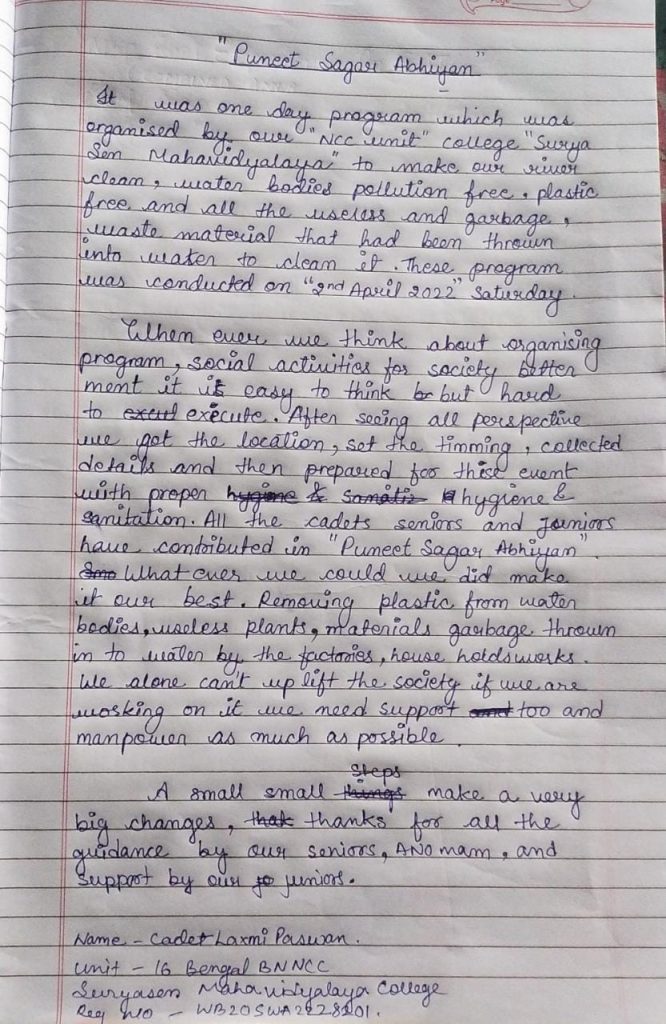 "Puneet Sagar Abhiyan"
It was one day program which was
organised by our "NCC unit" college "Surya
Sen Mahavidyalaya" to make our river
clean, water bodies pollution free, plastic
free and all the useless and garbage,
waste material that had been thrown
into water to clean it. These program
was conducted on "2nd April 2022" Saturday.
When ever we think about organising
program, social activities for society better
ment it is easy to think but hard
to execute. After seeing all perspective
we got the location, set the timming, collected
details and then prepared for this event
with proper hygiene &
sanitation. All the cadets seniors and Juniors
have contributed in "Puneet Sagar Abhiyan".
What ever we could we did make
it our best. Removing plastic from water
bodies, useless plants, materials garbage thrown
in to water by the factories, house holds works.
We alone can't up lift the society if we are
working on it we need support too and
manpower as much as possible.
A small small steps make a very
big changes, thanks for all the
guidance by our seniors, ANO mam, and
support by our juniors.
Name - Cadet Laxmi Paswan.
Unit - 16 Bengal BN NCC
Suryasen Mahavidyalaya College
Reg No -